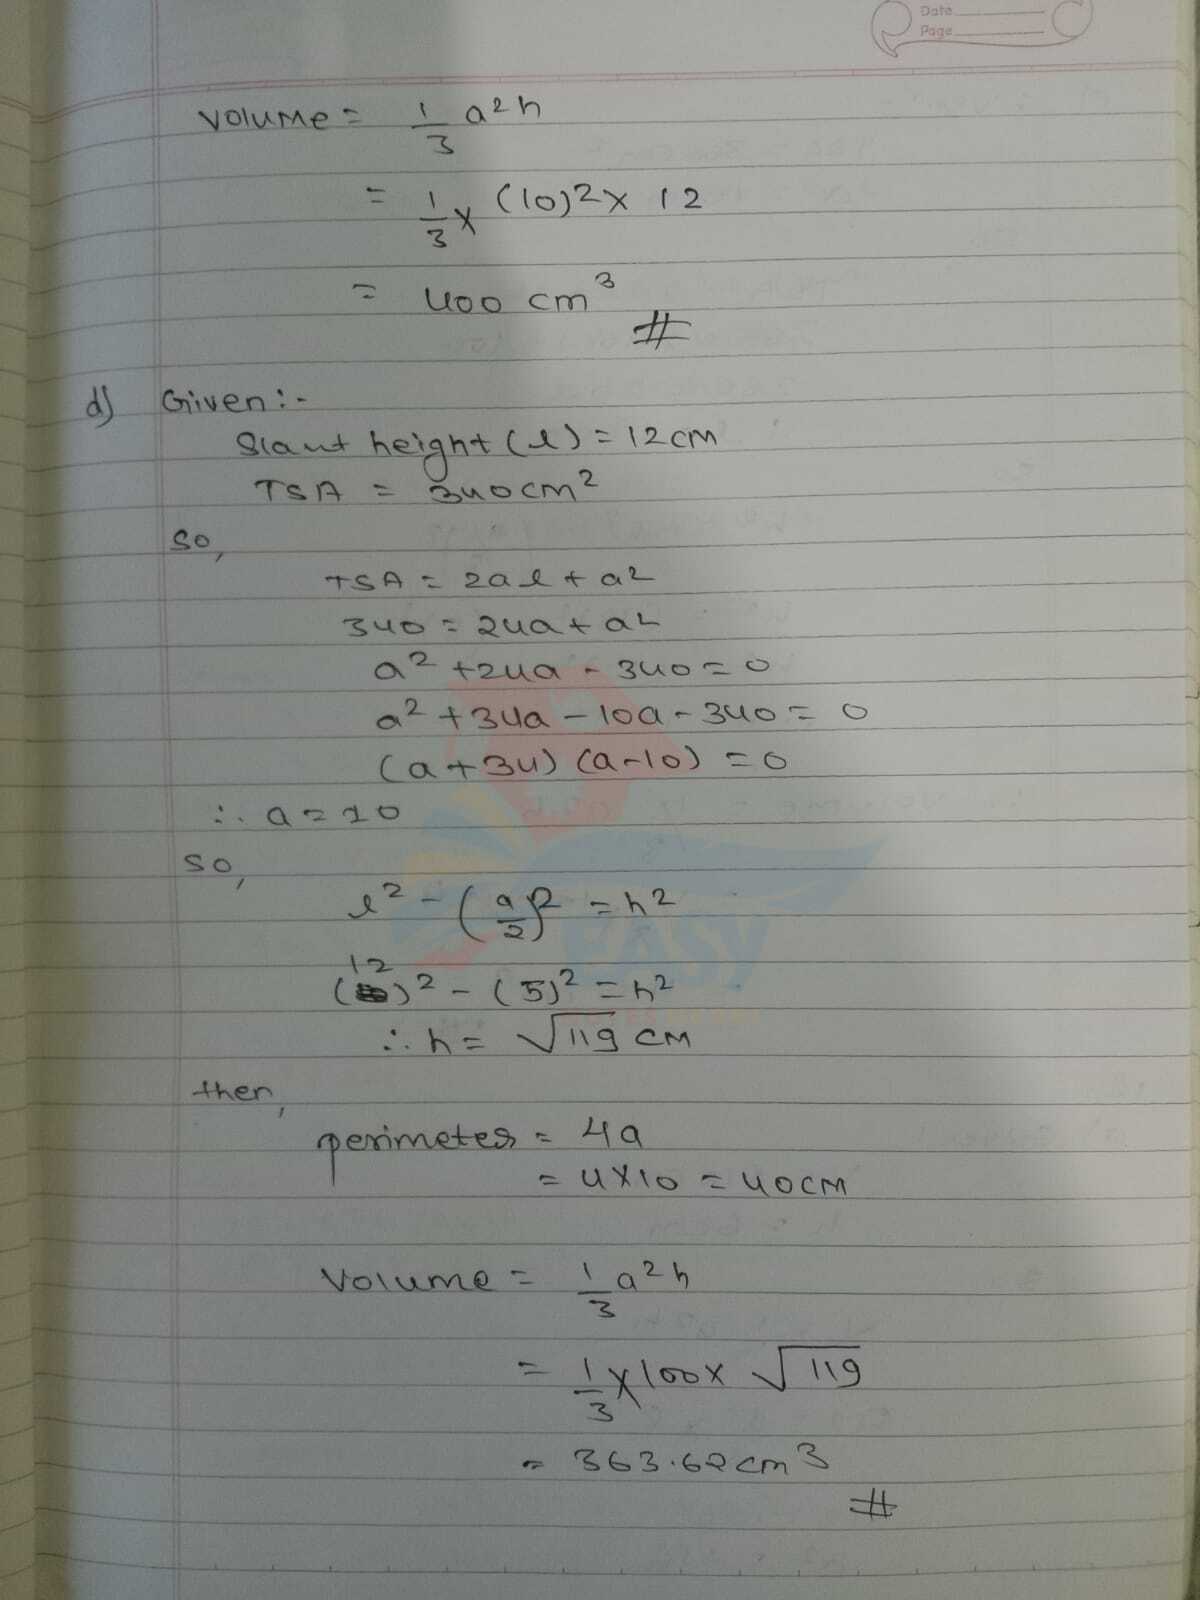 Date
Page
Volume = 1/3 a²h
= 1/3 × (10)² × 12
= 400 cm³
#
d) Given :-
Slant height (l) = 12 cm
TSA = 340 cm²
So,
TSA = 2al + a²
340 = 24a + a²
a² + 24a - 340 = 0
a² + 34a - 10a - 340 = 0
(a + 34) (a - 10) = 0
∴ a = 10
so,
l² - (a/2)² = h²
(12)² - (5)² = h²
∴ h = √119 cm
then,
perimeter = 4a
= 4×10 = 40cm
Volume = 1/3 a²h
= 1/3 × 100 × √119
= 363.62 cm³
#
EASY